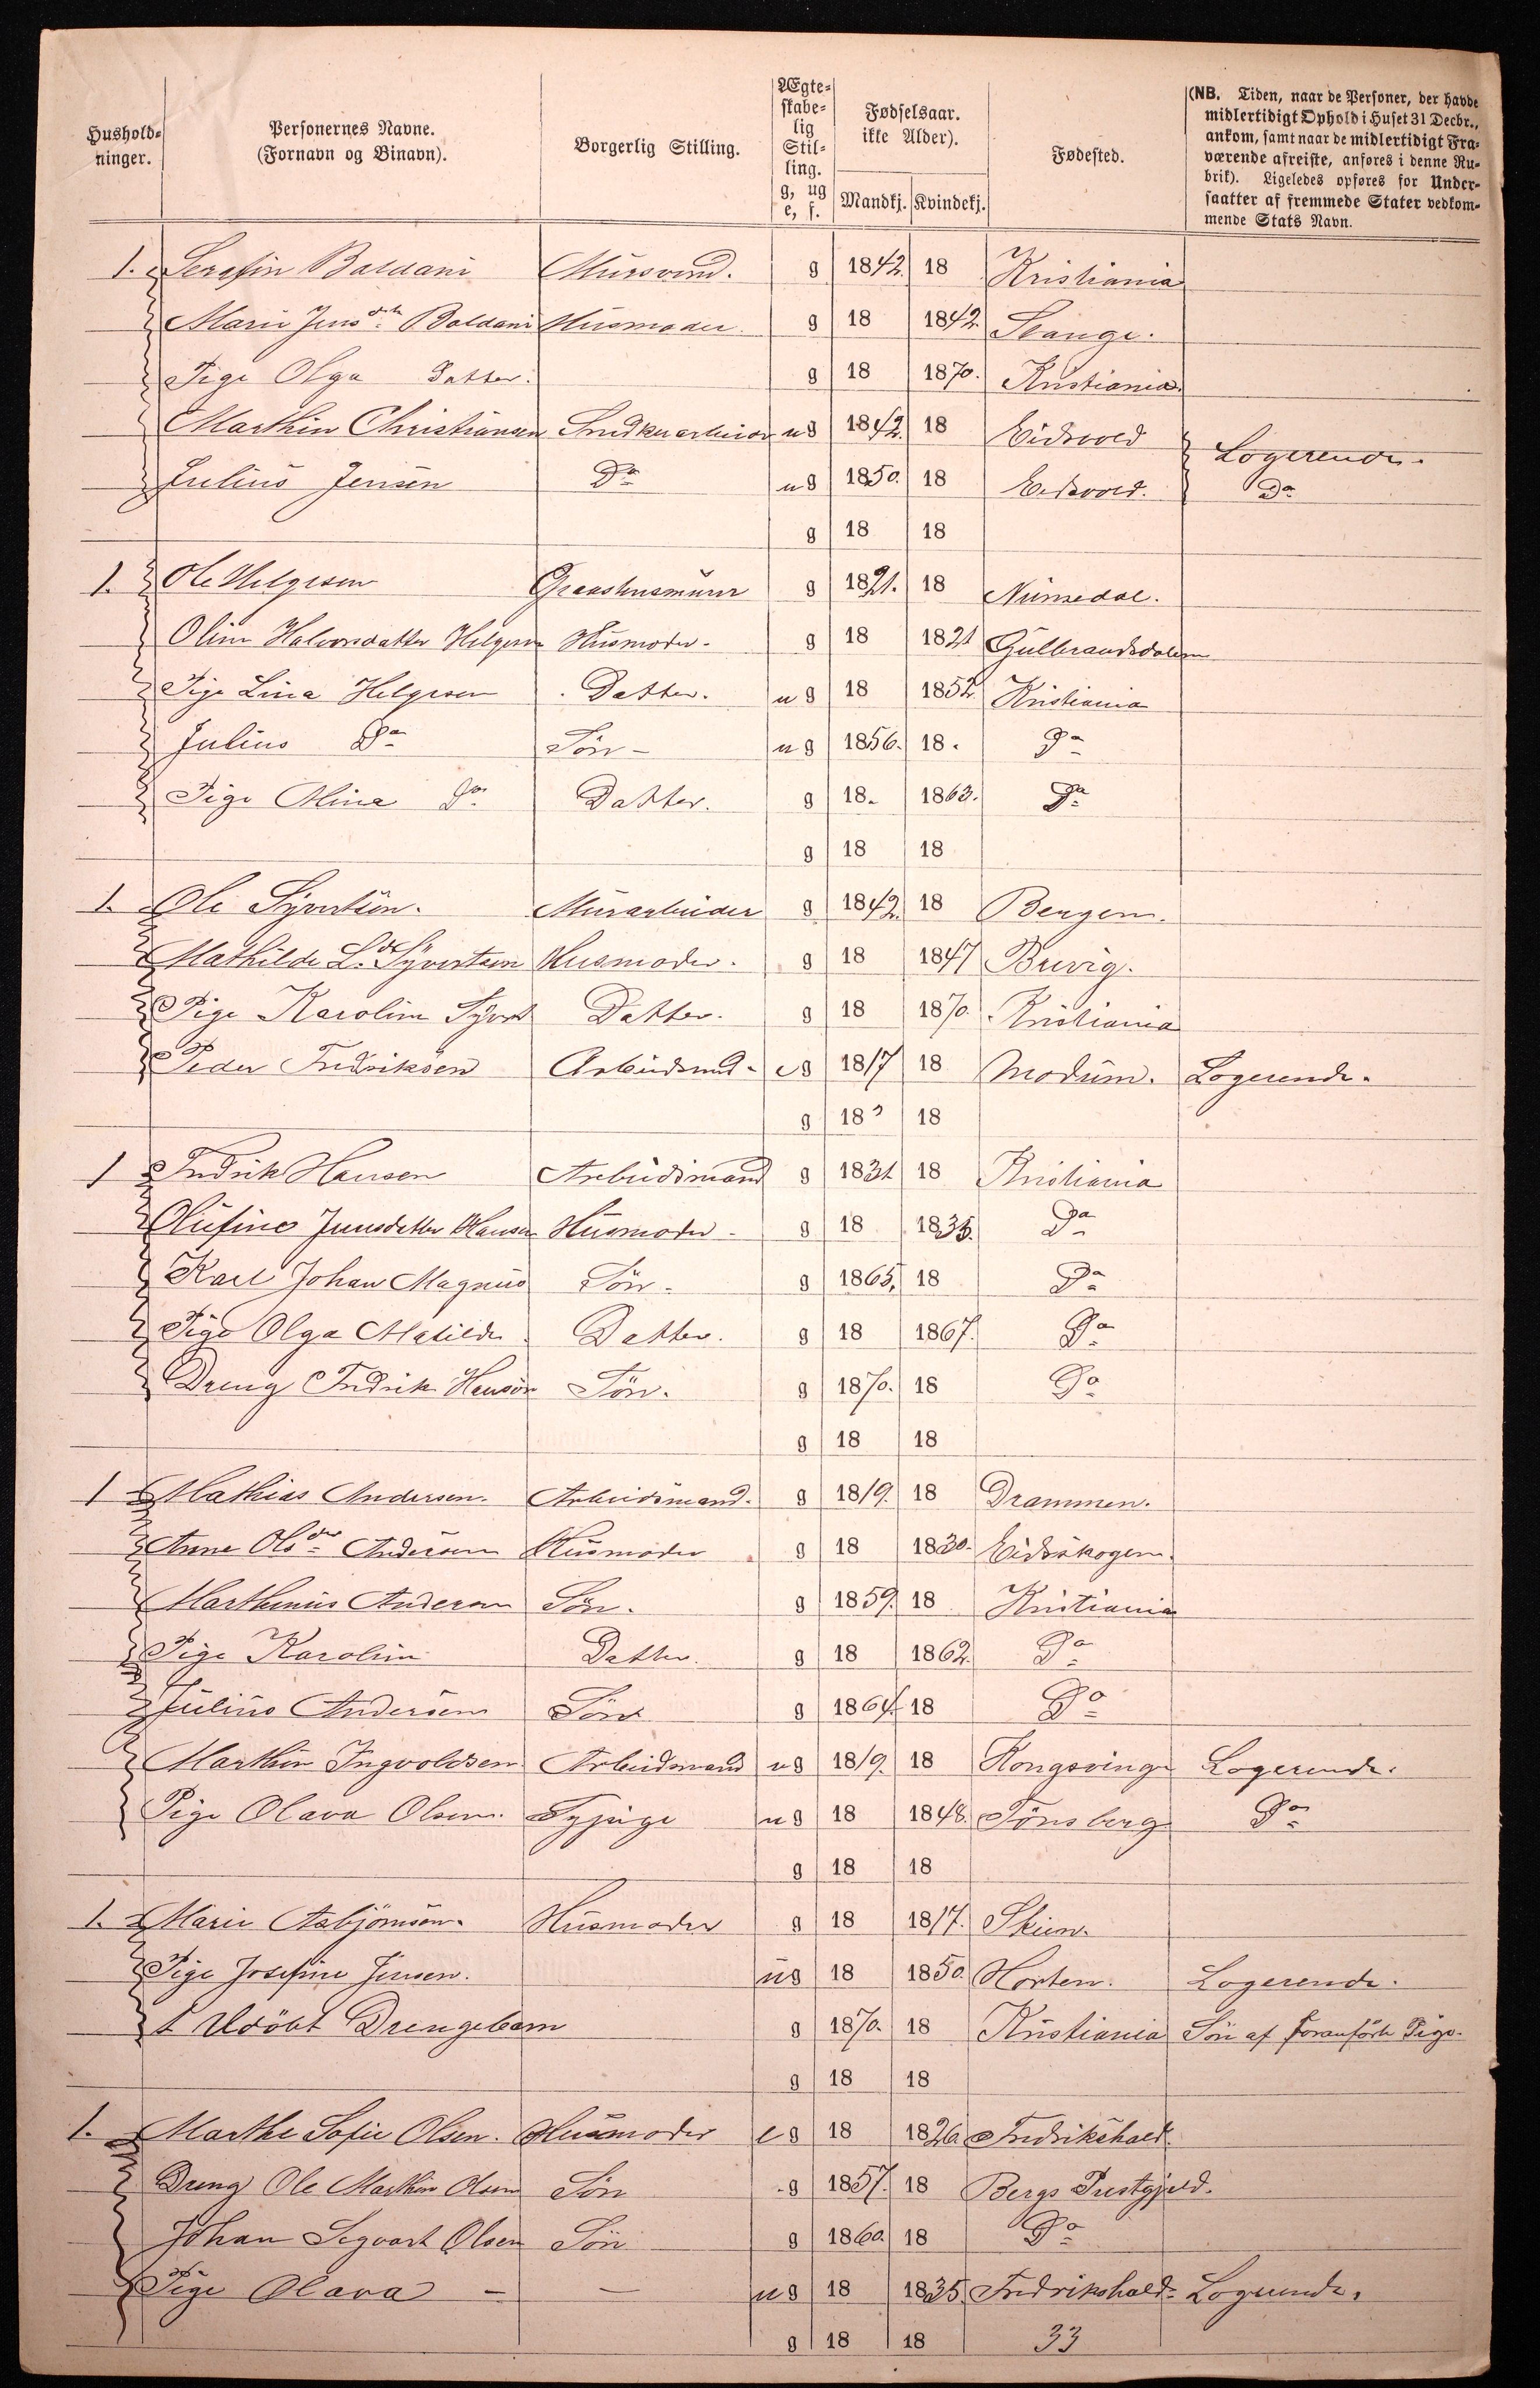 Hushold-
ninger.
Personernes Navne.
(Fornavn og Binavn).
Borgerlig Stilling.
Ægte-
skabe-
lig
Stil-
ling.
g, ug
e, f.
Fødselsaar.
ikke Alder).
Mandkj. Kvindekj.
Fødested.
(NB. Tiden, naar de Personer, der havde
midlertidigt Ophold i Huset 31 Decbr.,
ankom, samt naar de midlertidigt Fra-
værende afreiste, anføres i denne Ru-
brik). Ligeledes opføres for Under-
saatter af fremmede Stater vedkom-
mende Stats Navn.
1. Serafin Baldani Mursvend. g 1842. 18 Kristiania
Marie Jensdtr Baldani Husmoder. g 18 1842. Stange.
Pige Olga Datter. g 18 1870. Kristiania.
Marthin Christiansen ug 1842. 18 Eidsvold Logerende.
Julius Jensen Do ug 1850. 18 Eidsvold. Do
g 18 18
1. Ole Helgesen g 1821. 18 Numedal.
Oline Halvorsdatter Helgesen Husmoder. g 18 1821 Gulbrandsdalen
Pige Lina Helgesen Datter. ug 18 1852. Kristiania
Julius Do Sön - ug 1856. 18. Do
Pige Olina Do Datter. g 18. 1863. Do
g 18 18
1. Ole Syvertsen. Murarbeider g 1842. 18 Bergen.
Mathilde L. dr Syvertsen Husmoder. g 18 1847 Brevig.
Pige Karoline Syvert Datter. g 18 1870. Kristiania
Peder Fredriksen Arbeidsmd. eg 1817 18 Modum. Logerende.
g 18 18
1 Fredrik Hansen Arbeidsmand g 1831 18 Kristiania
Olufine Jensdatter Hansen Husmoder - g 18 1835. Do
Karl Johan Magnus Sön. g 1865. 18 Do
Pige Olga Matilde Datter. g 18 1867. Do
Dreng Fredrik Hansen Sön. g 1870. 18 Do
g 18 18
1 Mathias Andersen. Arbeidsmand. g 1819. 18 Drammen.
Anne Olsdtr Andersen Husmoder g 18 1830. Eidskogen.
Marthinius Andersen Sön. g 1859. 18 Kristiania
Pige Karoline Datter. g 18 1862. Do
Julius Andersen Sön g 1864. 18 Do
Marthin Ingvoldsen Arbeidsmand ug 1819. 18 Kongsvinger Logerende.
Pige Olava Olsen. Sypige ug 18 1848. Tönsberg Do
g 18 18
1. Marie Asbjörnsen. Husmoder g 18 1817. Skien.
Pige Josefine Jensen. ug 18 1850. Horten. Logerende.
1 Udöbt Drengebarn g 1870. 18 Kristiania Sön af foranförte Pige.
g 18 18
1. Marthe Sofie Olsen. Husmoder eg 18 1826. Fredrikshald.
Dreng Ole Marthin Olsen Sön g 1857. 18 Bergs Prestgjeld.
Johan Segvart Olsen Sön g 1860. 18 Do
Pige Olava - - ug 18 1835. Fredrikshald. Logerende.
g 18 18 33